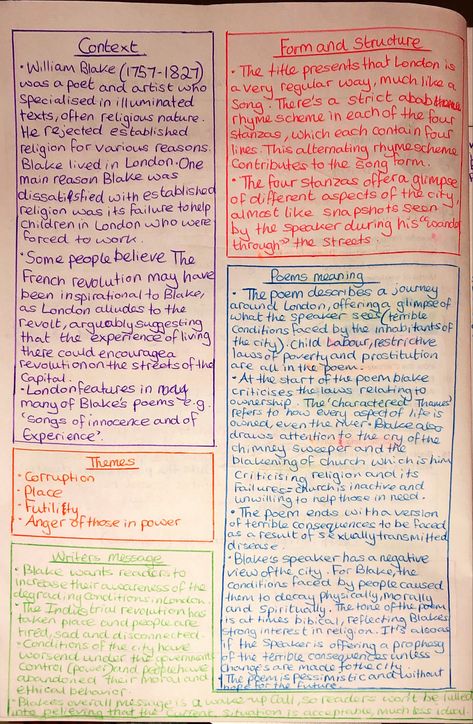 Context
• William Blake (1757-1827)
was a poet and artist who
specialised in illuminated
texts, often religious nature.
He rejected established
religion for various reasons.
Blake lived in London. One
main reason Blake was
dissatisfied with established
religion was its failure to help
children in London who were
forced to work.
• Some people believe The
French revolution may have
been inspirational to Blake,
as London alludes to the
revolt, arguably suggesting
that the experience of living
there could encourage a
revolution on the streets of the
Capital.
• London features in
many of Blake's poems e.g.
'songs of innocence and of
Experience'.
Themes
• Corruption
• Place
• Futility
• Anger of those in power
Writers Message
• Blake wants readers to
increase their awareness of the
degrading conditions in London.
• The Industrial revolution has
taken place and people are
tired, sad and disconnected.
• Conditions of the city have
worsend under the governments
control/power and people have
abandoned their moral and
ethical behavior.
• Blakes overall message is a wake-up call, so readers won't be lulled
into believing that the current situation is acceptable, much less ideal
Form and Structure
• The title presents that London is
a very regular way, much like a
song. There's a strict abab
rhyme scheme in each of the four
stanzas, which each contain four
lines. This alternating rhyme scheme
Contributes to the song form.
• The four stanzas offer a glimpse
of different aspects of the city,
almost like snapshots seen
by the speaker during his "wander
through" the streets.
Poems meaning
• The poem describes a journey
around London, offering a glimpse of
what the speaker sees (terrible
Conditions faced by the inhabitants of
the city). Child Labour, restrictive
laws of poverty and prostitution
are all in the poem.
• At the start of the poem blake
criticises the laws relating to
ownership. The 'charactered Themes'
refers to how every aspect of life is
owned even the river. Blake also
draws attention to the cry of the
chimney sweeper and the
blakening of church which is him
Criticising religion and its
failures = church is inactive and
unwilling to help those in need.
• The poem ends with a version
of terrible consequences to be faced
as a result of sexually transmitted
disease.
• Blake's speaker has a negative
view of the city. For Blake, the
conditions faced by people caused
them to decay physically, morally
and spiritually. The tone of the poem
is at times bibical, reflecting Blakes
strong interest in religion. It's also as
if the speaker is offering a prophesy
of the terrible consequences unless
changes are made to the city.
• The poem is pessimistic and without
hope for the future.